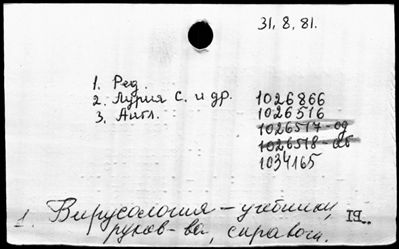 31.8.81.
1. Ред.
2. Лурия С. и др. 1026866
3. Англ. 1026516
1026517-од
1026518-аб
1034165
1. Вирусология - учебники,
руков-ва, справочн.